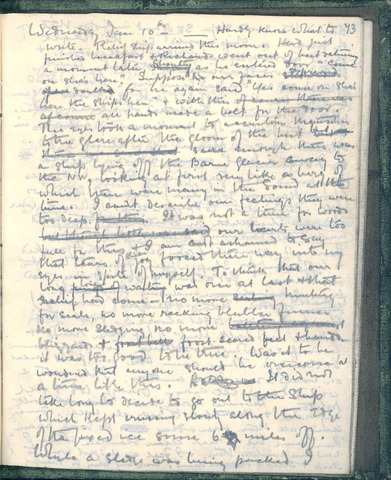 Wednesday Jan 10th — Hardly know what to 93
write. Relief ship arrived this morn. Had just
finished breakfast & Richards went out of hut returning
a moment as he entered door "coming
on shore here". Suppose he saw faces
for he again said "Yes come on shore
here the Ship's here" & with this
of course all hands made a bolt for the door.
The eyes took a moment to accustom themselves
to the glare after the gloom of the hut
Sure enough there was
a ship lying off the Barne Glacier away to
the NW, looking at first very like a berg of
which there were many in the Sound all the
time. I cannot describe our feelings they were
too deep. It was not a time for words
our hearts were too
full for this & I am not ashamed to say
that tears of joy forced their way into my
eyes in spite of myself. To think that our
long waiting was over at last & that
relief had come — no more hunting
for seals, no more reeking blubber fumes
no more sledging no more
blizzards & frost scared feet & hands
it was too good to be true. Was it to be
wondered that anyone should be overcome at
a time like this. It did not
take long to decide to go out to the Ship
which kept cruising about along the edge
of the fixed ice some 6 miles off.
While a sledge was being packed I